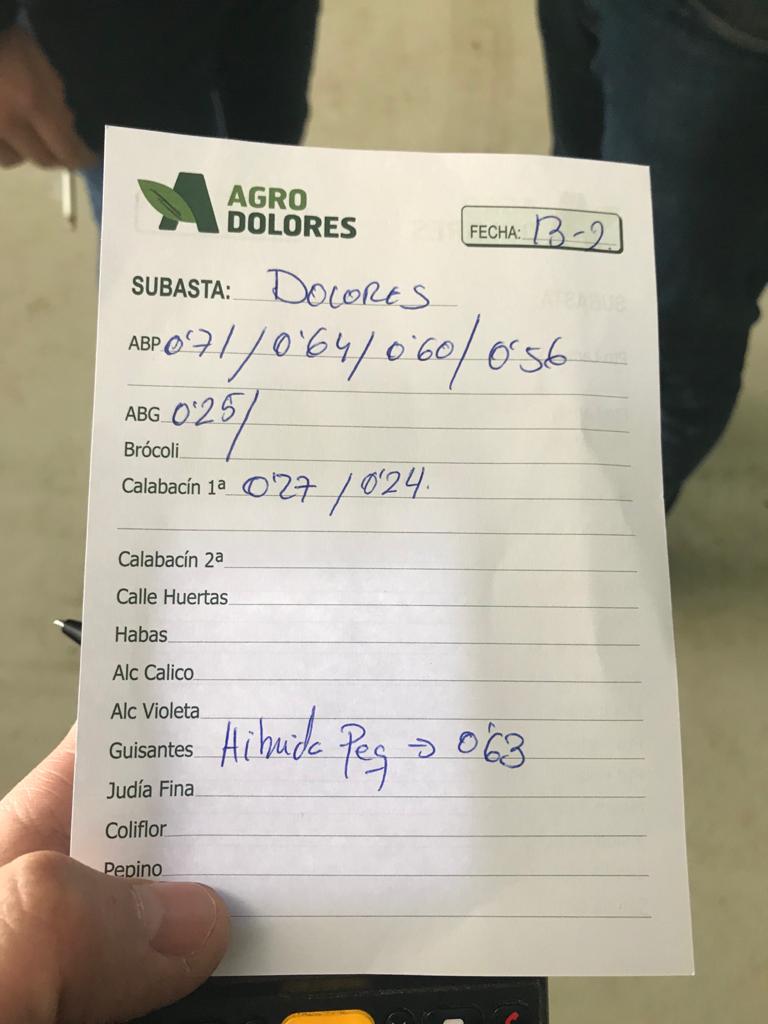 AGRO
DOLORES
FECHA: 13-2
SUBASTA: DOLORES
ABP 0'71 / 0'64 / 0'60 / 0'56
ABG 0'25 /
Brócoli
Calabacín 1ª 0'27 / 0'24.
Calabacín 2ª
Calle Huertas
Habas
Alc Calico
Alc Violeta
Guisantes Hibrida Peq → 0'63
Judía Fina
Coliflor
Pepino